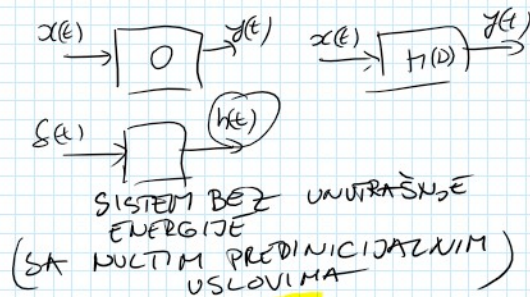 x(t) O y(t) x(t) H(D) y(t)
δ(t) h(t)
SISTEM BEZ UNUTRAŠNJE
ENERGIJE
(SA NULTIM PREDINICIJALNIM
USLOVIMA)